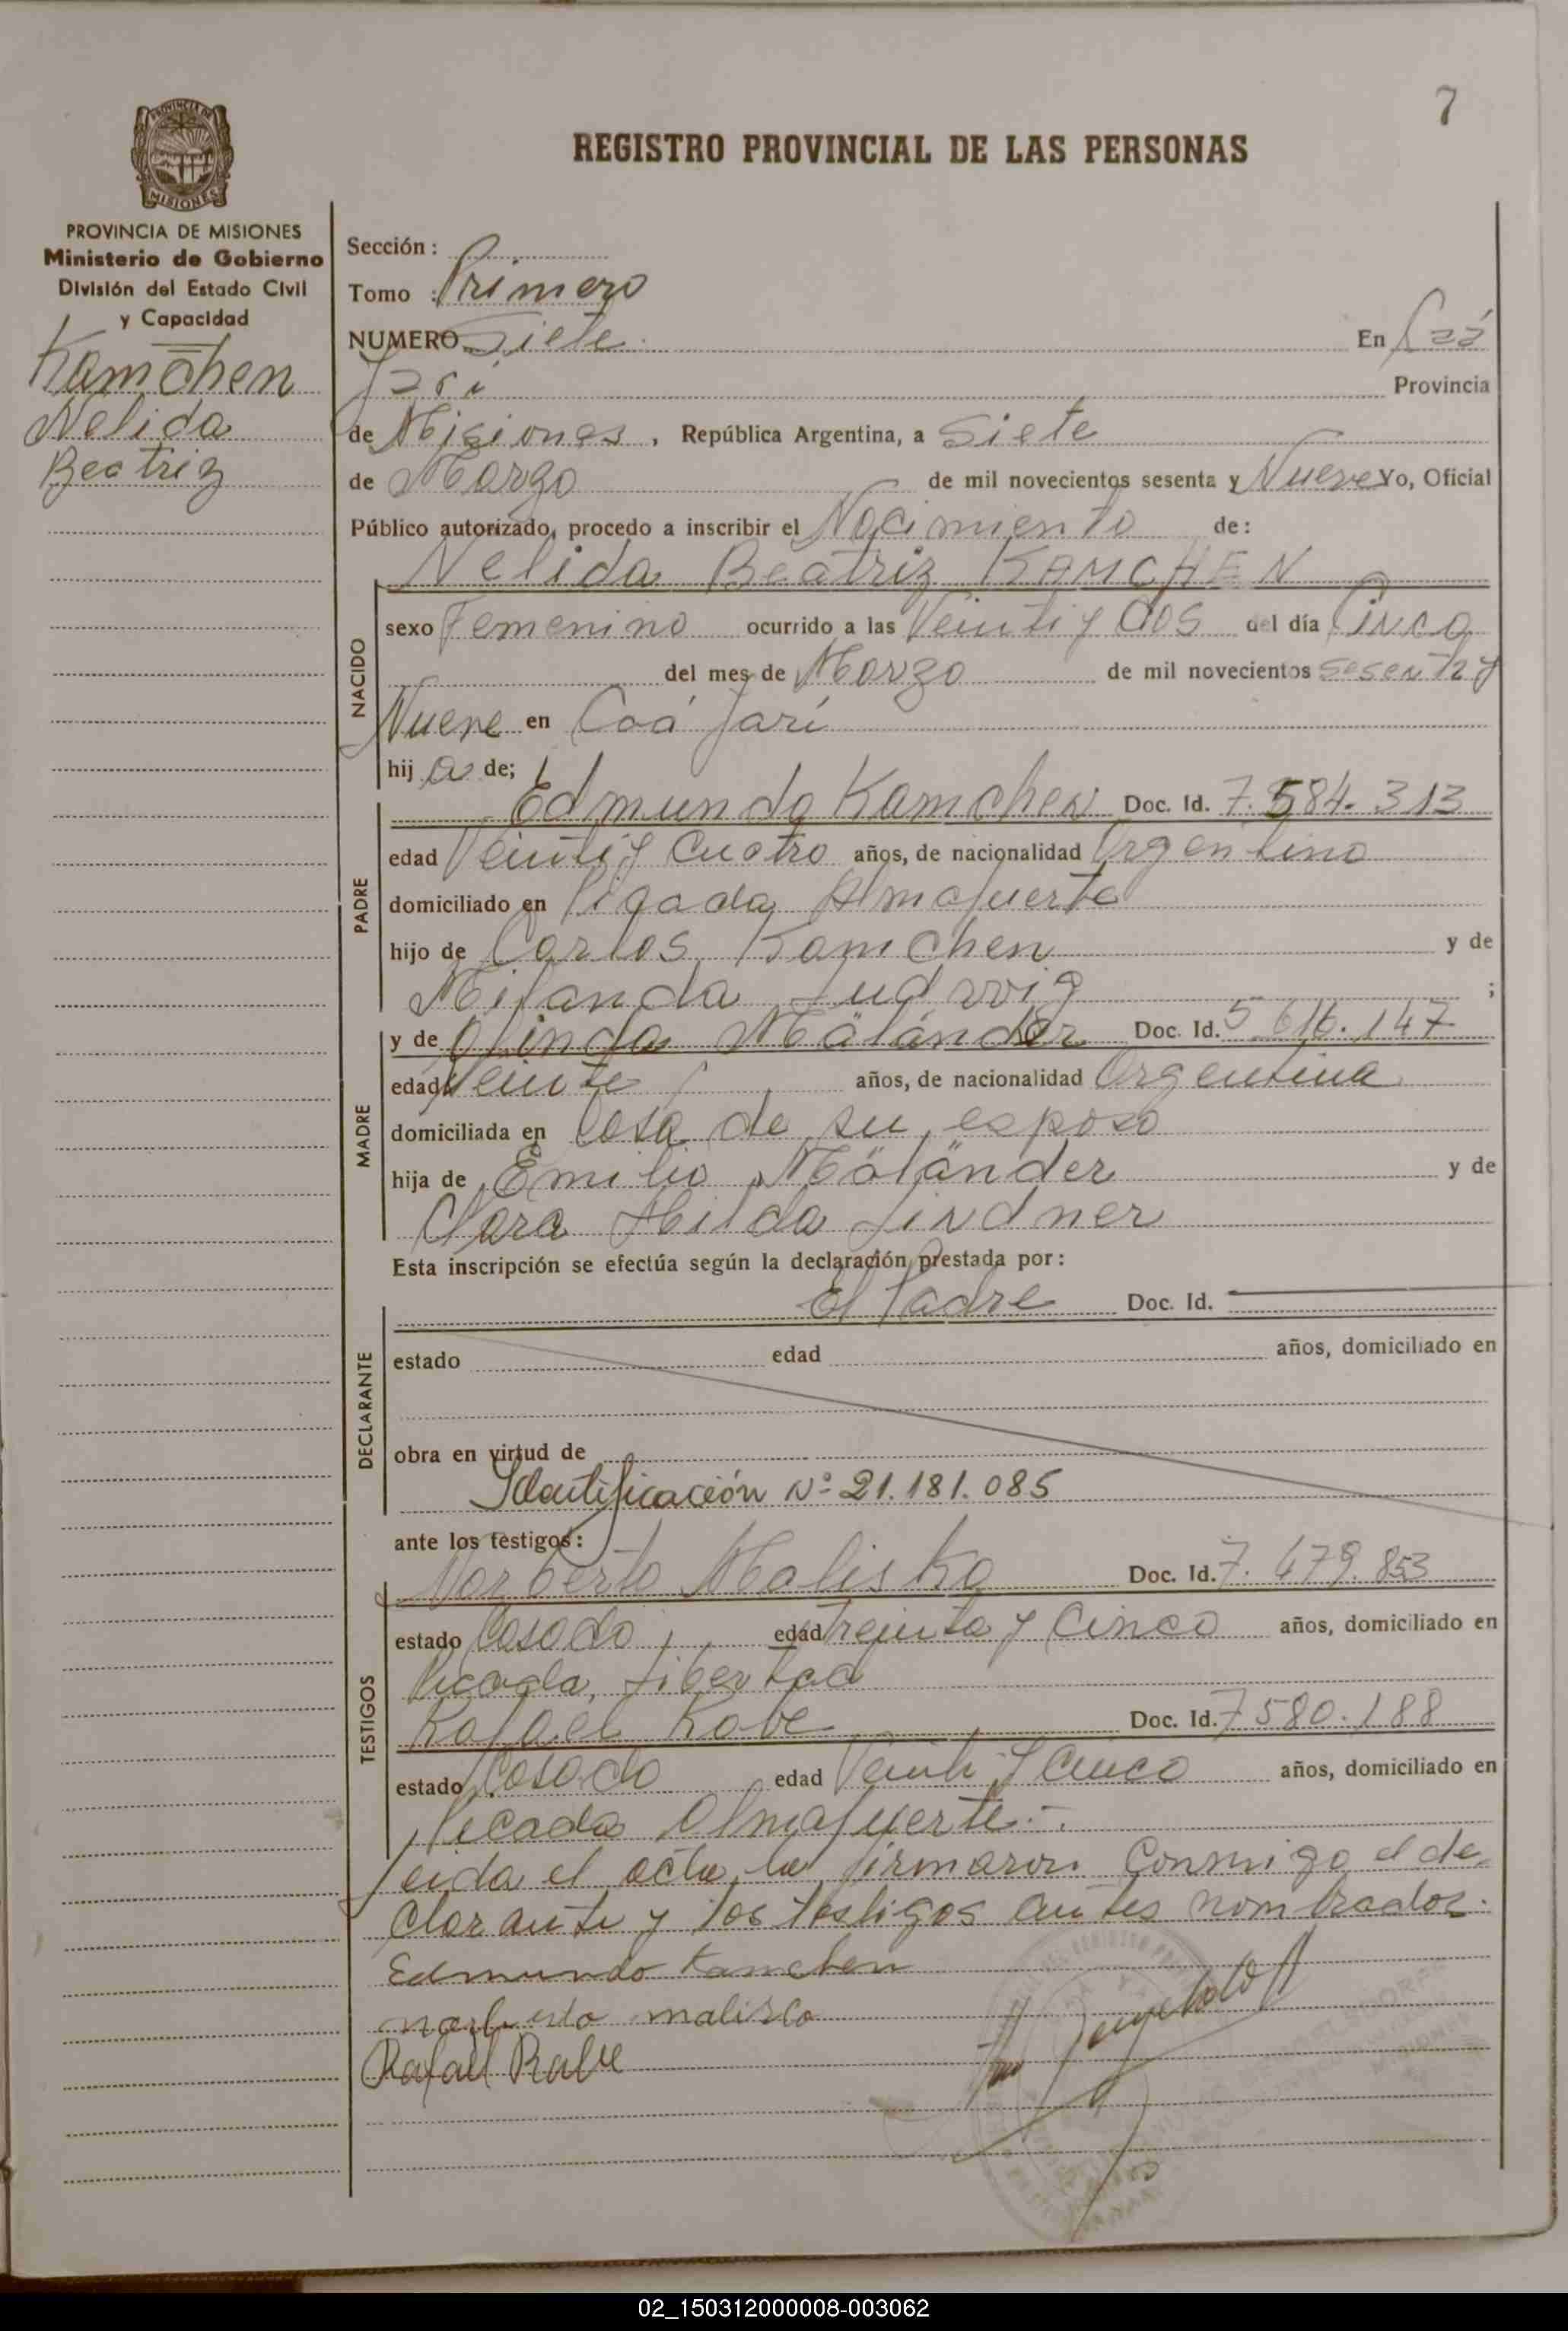 7
REGISTRO PROVINCIAL DE LAS PERSONAS
PROVINCIA DE
MISIONES
PROVINCIA DE MISIONES
Ministerio de Gobierno
División del Estado Civil
y Capacidad
Kamchen
Nelida
Beatriz
Sección :
Tomo : Primero
NUMERO Siete En Caá
Yarí Provincia
de Misiones , República Argentina, a Siete
de Marzo de mil novecientos sesenta y Nueve Yo, Oficial
Público autorizado, procedo a inscribir el Nacimiento de :
Nelida Beatriz KAMCHEN
NACIDO
sexo Femenino ocurrido a las Veinti y dos del día Cinco
del mes de Marzo de mil novecientos sesenta y
Nueve en Caá Yarí
hij a de;
PADRE
Edmundo Kamchen Doc. Id. 7.584.313
edad Veinti y Cuatro años, de nacionalidad Argentino
domiciliado en Picada Almafuerte
hijo de Carlos Kamchen y de
Ludwig ;
MADRE
y de Olinda Mäländer Doc. Id. 5 616.147
edad Veinte años, de nacionalidad Argentina
domiciliada en Casa de su esposo
hija de Emilio Mäländer y de
Clara Hilda Lindner
Esta inscripción se efectúa según la declaración prestada por :
DECLARANTE
El Padre Doc. Id.
estado edad años, domiciliado en
obra en virtud de
Identificación Nº 21.181.085
ante los testigos :
TESTIGOS
Norberto Malisko Doc. Id. 7.479.853
estado Casado edad treinta y Cinco años, domiciliado en
Picada Libertad
Rafael Rabe Doc. Id. 7 580.188
estado Casado edad Veinti y Cinco años, domiciliado en
Picada Almafuerte.-.
Leida el acta la firmaron Conmigo el de
clarante y los testigos antes nombrados.
Edmundo Kamchen
norberto malisko
Rafael Rabe
02_150312000008-003062